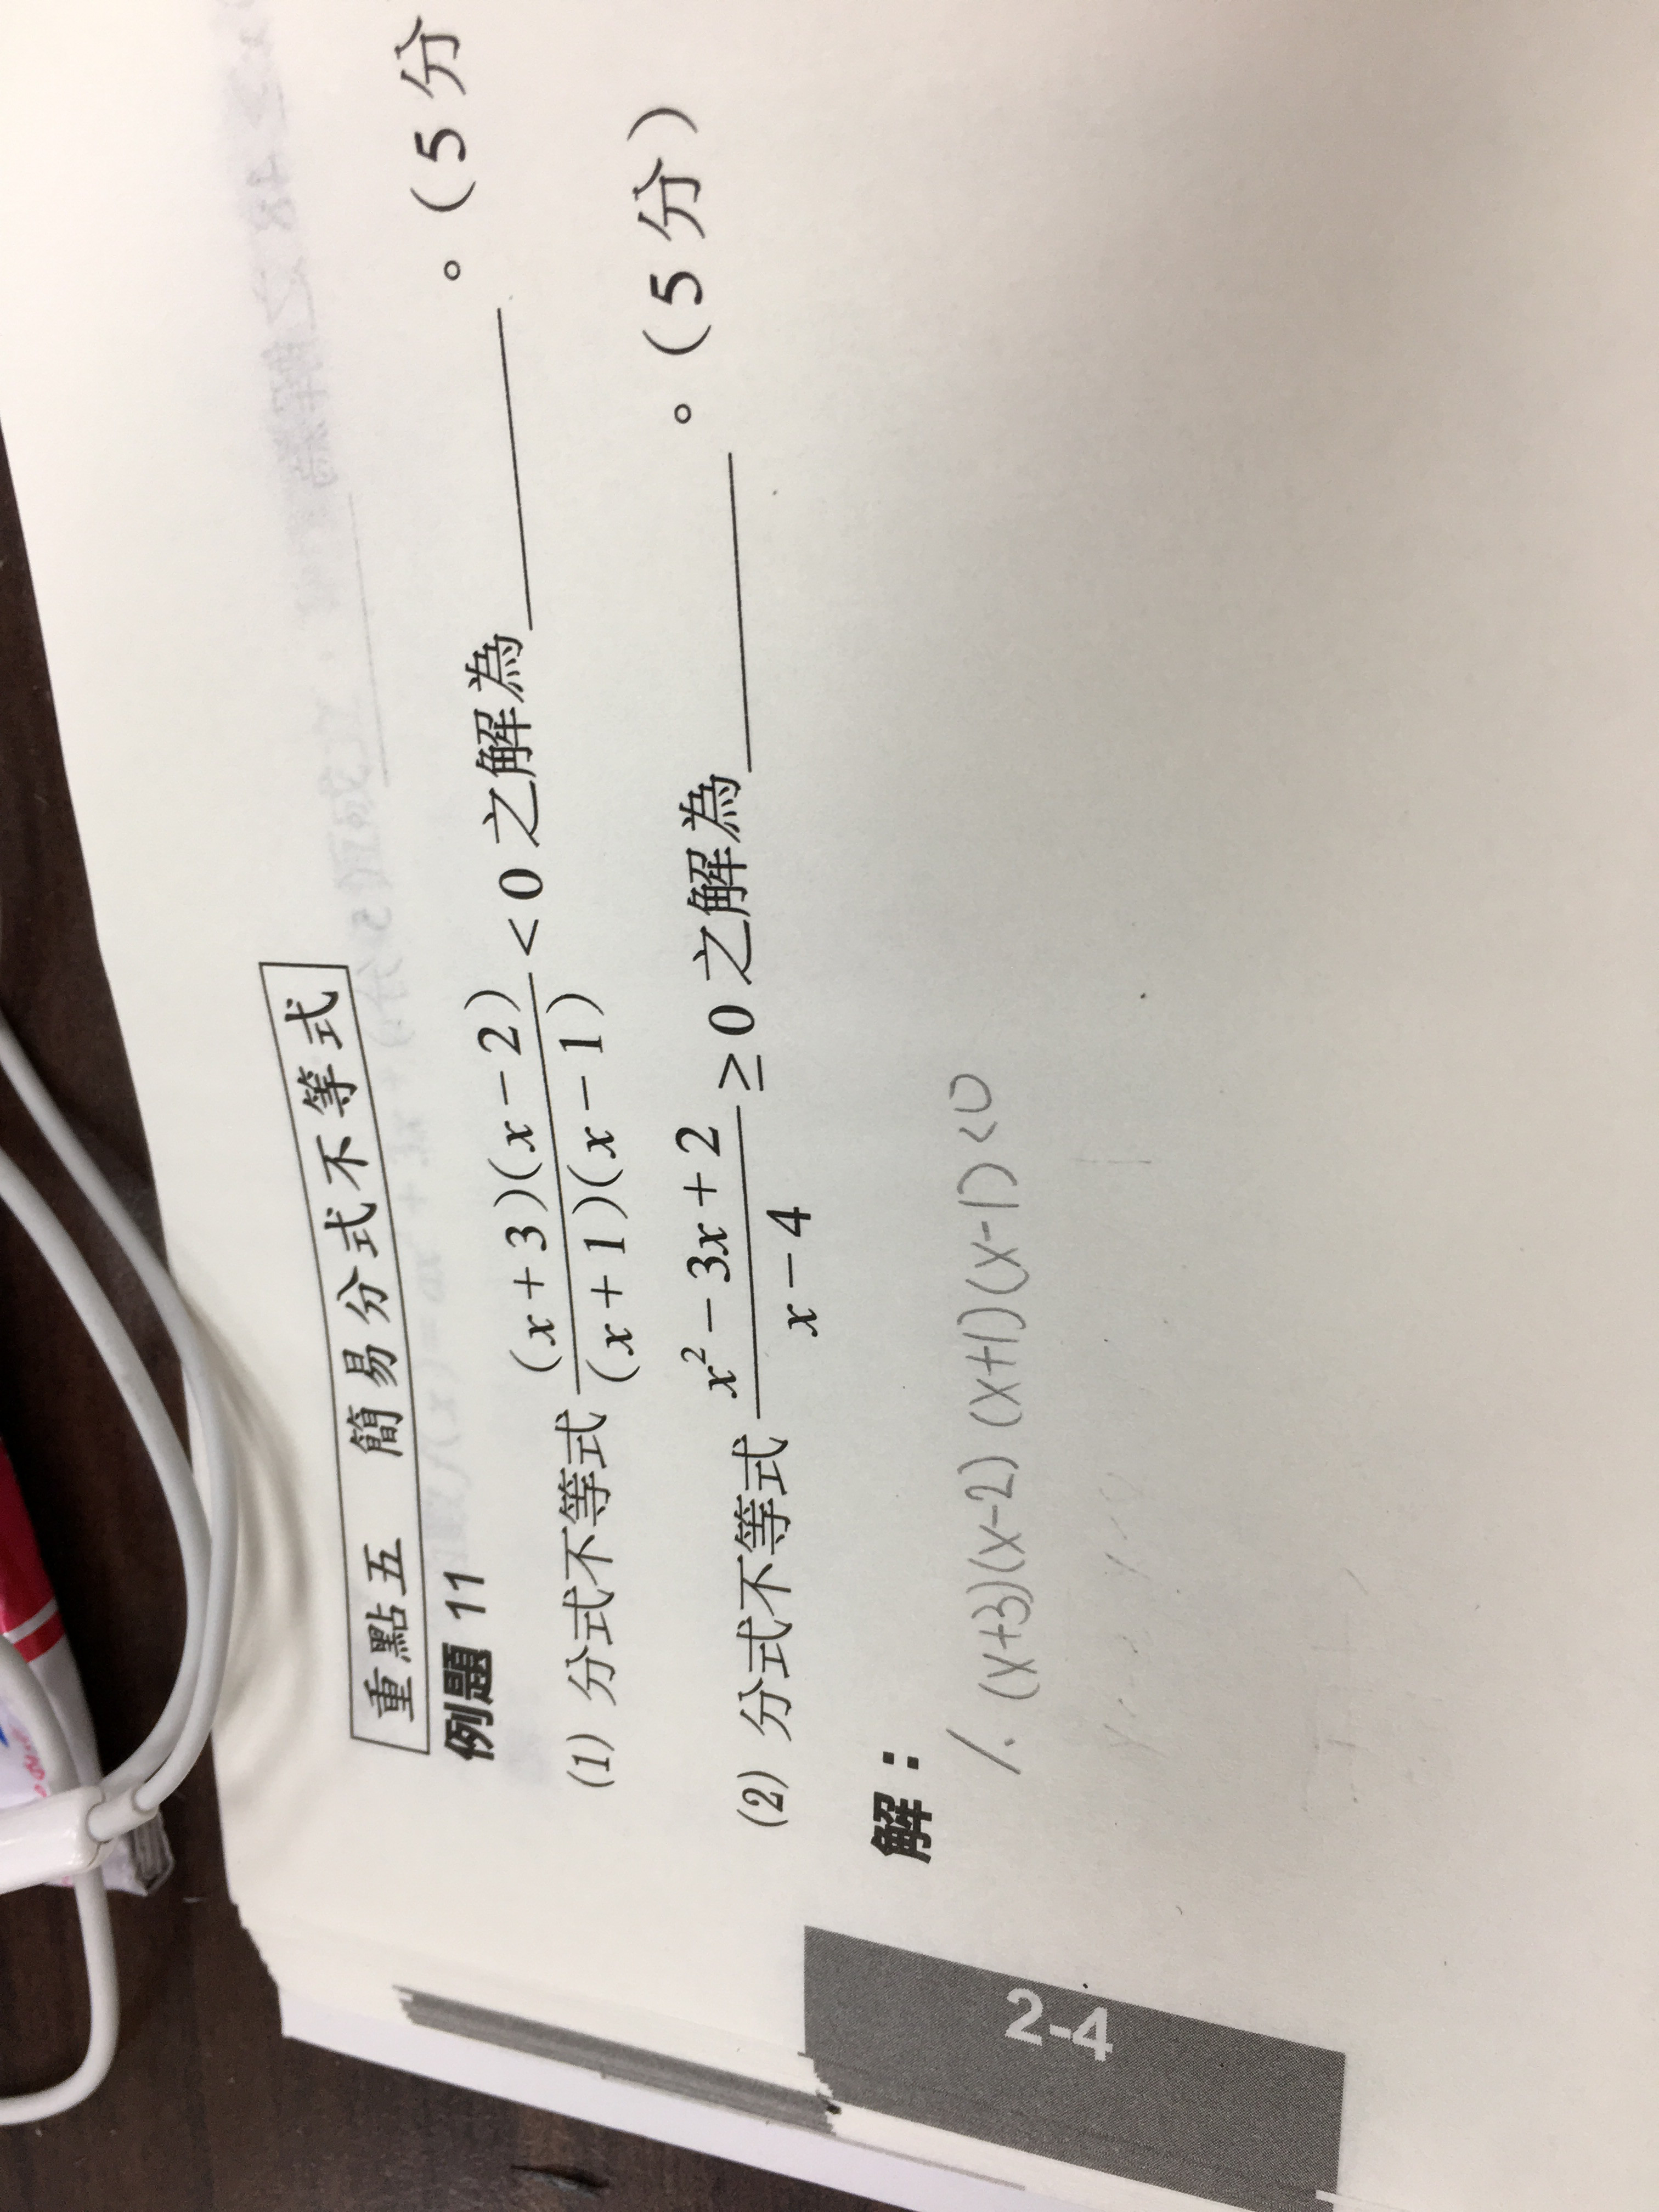 重點五 簡易分式不等式
例題 11
(1) 分式不等式 (x+3)(x-2)/(x+1)(x-1) < 0 之解為______。(5分
(2) 分式不等式 x²-3x+2/x-4 ≥ 0 之解為______。(5分)
解:
1. (x+3)(x-2)(x+1)(x-1)<0
2-4